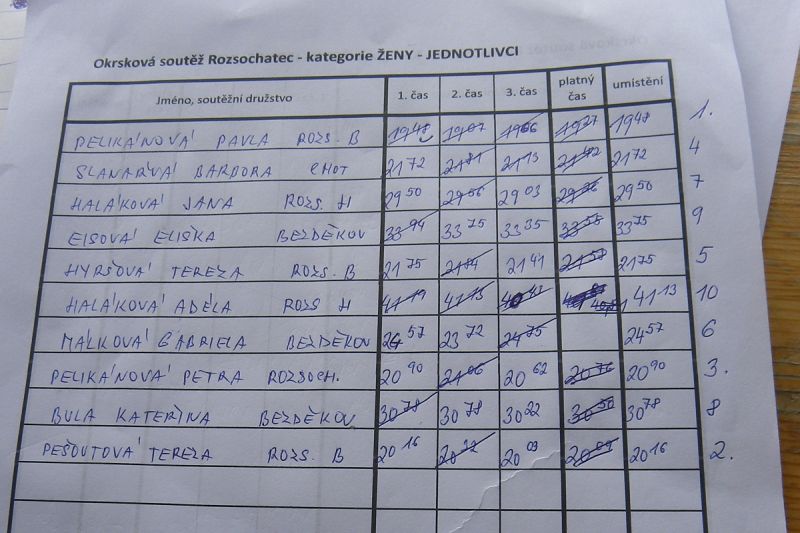 Okrsková soutěž Rozsochatec - kategorie ŽENY - JEDNOTLIVCI
Jméno, soutěžní družstvo 1. čas 2. čas 3. čas platný čas umístění
PELIKÁNOVÁ PAVLA ROZS. B 19 48 19 07 19 27 19 48 1.
SLANAŘVÁ BARBORA CHOT 21 72 21 81 21 13 21 72 4
HALÁKOVÁ JANA ROZS. H 29 50 29 56 29 03 29 50 7
EISOVÁ ELIŠKA BEZDĚKOV 33 94 33 75 33 35 33 75 9
HYRŠOVÁ TEREZA ROZS. B 21 75 21 84 21 41 21 57 21 75 5
HALÁKOVÁ ADÉLA ROZS H 41 19 41 13 41 13 10
MÁLKOVÁ GABRIELA BEZDĚKOV 24 57 23 72 24 75 24 57 6
PELIKÁNOVÁ PETRA ROZSOCH. 20 90 21 06 20 62 20 76 20 90 3.
BULA KATEŘINA BEZDĚKOV 30 78 30 78 30 22 30 50 30 78 8
PEŠOUTOVÁ TEREZA ROZS. B 20 16 20 22 20 03 20 09 20 16 2.